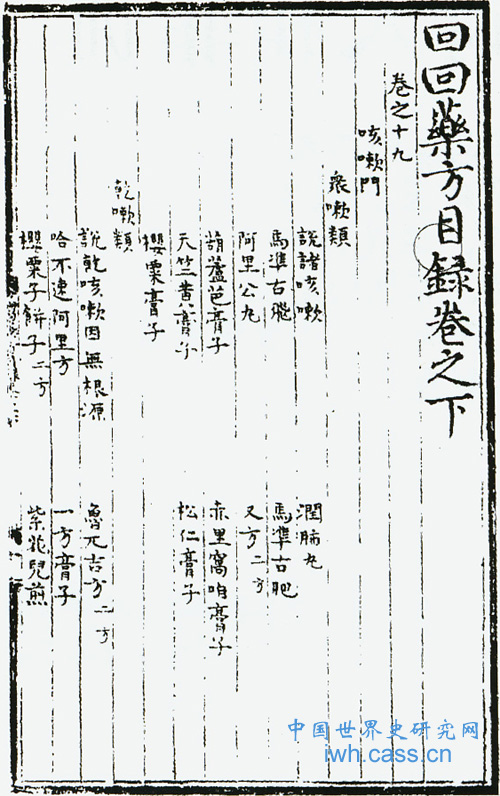 回回藥方目録卷之下
卷之十九
咳嗽門
衆嗽類
說諸咳嗽
潤肺丸
馬準古肥
馬準古肥
阿里公丸
又方二方
葫蘆芭膏子
赤里窩咱膏子
天竺黄膏子
松仁膏子
櫻粟膏子
乾嗽類
說乾咳嗽因無根源
魯兀吉方二方
哈不速阿里方
一方膏子
櫻粟子餅子二方
紫花兒煎
中国世界史研究网
iwh.cass.cn